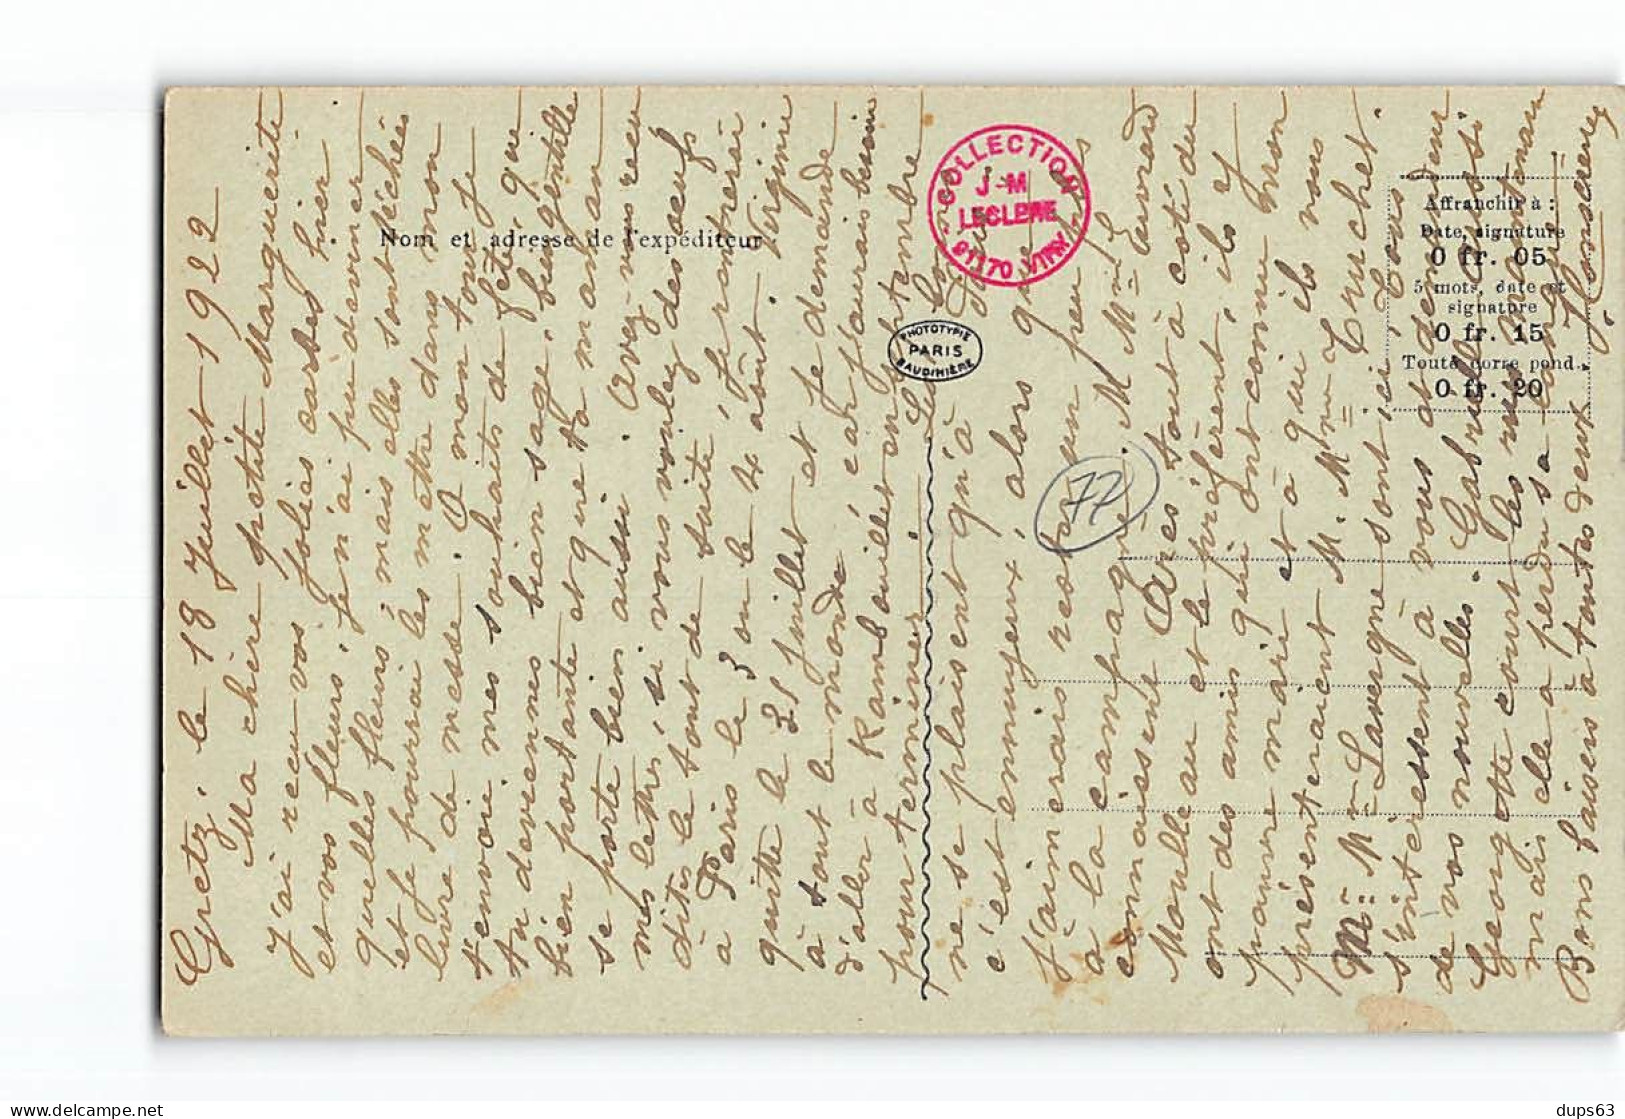 Gretz, le 18 Juillet 1922
Ma chère petite Marguerite
J'ai recu vos jolies cartes hier
et vos fleurs. Je n'ai pu deviner
quelles fleurs mais elles sont séchées
et je pourrai les mettre dans mon
livre de messe. A mon tour je
t'envoie mes souhaits de fête, que
tu deviennes bien sage, bien gentille
bien portante et que ta maman
se porte bien aussi. Avez-vous recu
mes lettres si vous voulez des œufs
dites le tout de suite, je rentrerai
à Paris le 3 ou le 4 août. Virginie
quitte le 31 Juillet et je demande
à tout le monde, car j'aurais besoin
d'aller à Rambouillet en septembre
pour terminer.
ne se plaisent qu'à
c'est ennuyeux, alors que
j'aimerais rester un peu plus
à la campagne. M. Mme Euvrard
connaissent
Mouleau et le préfèrent, ils y
ont des amis qui ont connu mon
pauvre mari et à qui ils nous
présenteraient M. Mme Truchet.
M. Mme Lavergne sont ici, tous
s'intéressent à vous et demandent
de vos nouvelles. Gabrielle aussi
Georgette court les rues maintenant
mais elle a perdu sa
Bons baisers à toutes deux
Nom et adresse de l'expéditeur :
COLLECTION
J-M
LECLERE
91170 VIRY
PHOTOTYPIE
PARIS
BAUDINIÈRE
77
Affranchir à :
Date, signature
0 fr. 05
5 mots, date et
signature
0 fr. 15
Toute corre pond.
0 fr. 20
dups63